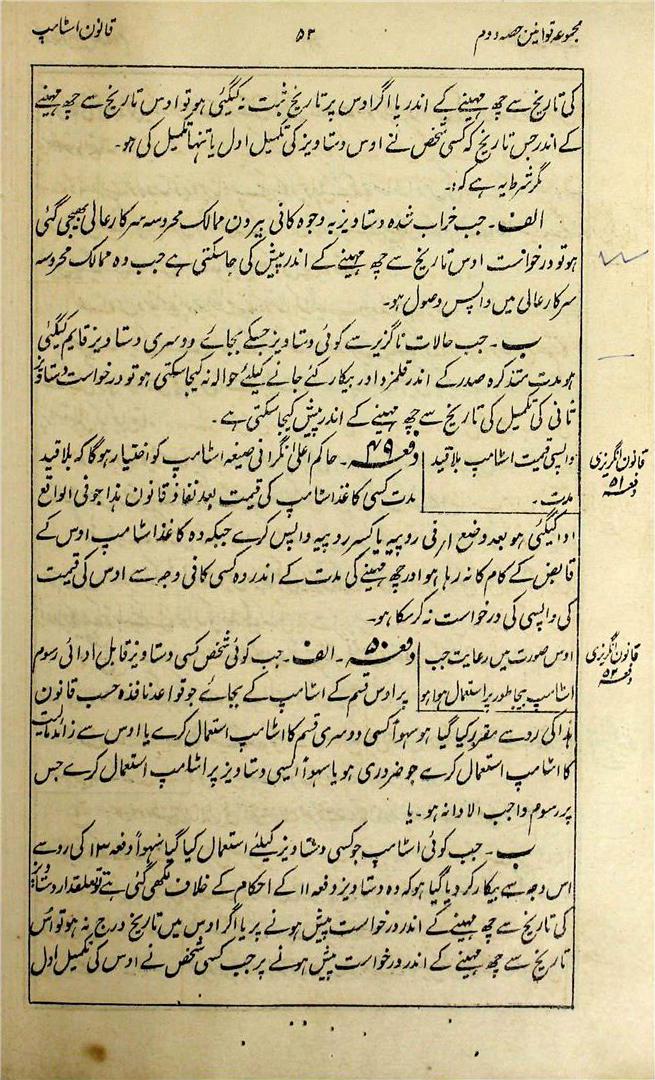 مجموعہ قوانین حصہ دوم
۵۳
قانون اسٹامپ
کی تاریخ سے چھ مہینے کے اندر یا اگر اوس پر تاریخ ثبت نہ کیگئی ہو تو اوس تاریخ سے چھ مہینے
کے اندر جس تاریخ کہ کسی شخص نے اوس دستاویز کی تکمیل اول یا تنہا تکمیل کی ہو۔
مگر شرط یہ ہے کہ:۔
الف۔ جب خراب شدہ دستاویز بہ وجوہ کافی بیرون ممالک محروسہ سرکار عالی بھیجی گئی
ہو تو درخواست اوس تاریخ سے چھ مہینے کے اندر پیش کی جاسکتی ہے جب وہ ممالک محروسہ
سرکار عالی میں واپس وصول ہو۔
ب۔ جب حالات ناگزیر سے کوئی دستاویز جسکے بجائے دوسری دستاویز قایم کیگئی
ہو مدت متذکرہ صدر کے اندر قلمزد اور بیکار کئے جانے کیلئے حوالہ نہ کیجاسکتی ہو تو درخواست دستاویز
ثانی کی تکمیل کی تاریخ سے چھ مہینے کے اندر پیش کیجاسکتی ہے۔
واپسی قیمت اسٹامپ بلاقید
مدت۔
قانون انگریزی
دفعہ ۵۱
دفعہ ۴۹۔ حاکم اعلیٰ نگرانی صیغہ اسٹامپ کو اختیار ہوگا کہ بلاقید
مدت کسی کاغذ اسٹامپ کی قیمت بعد نفاذ قانون ہذا جو فی الواقع
ادا کیگئی ہو بعد وضع ۱ر فی روپیہ یا کسر روپیہ واپس کرے جبکہ وہ کاغذ اسٹامپ اوس کے
قابض کے کام کا نہ رہا ہو اور چھ مہینے کی مدت کے اندر وہ کسی کافی وجہ سے اوس کی قیمت
کی واپسی کی درخواست نہ کرسکا ہو۔
اوس صورت میں رعایت جب
اسٹامپ بیجا طور پر استعمال ہوا ہو
قانون انگریزی
دفعہ ۵۲
دفعہ ۵۰۔ الف۔ جب کوئی شخص کسی دستاویز قابل ادائی رسوم
پر اوس قسم کے اسٹامپ کے بجائے جو قواعد نافذہ حسب قانون
ہذا کی رو سے مقرر کیا گیا ہو سہواً کسی دوسری قسم کا اسٹامپ استعمال کرے یا اوس سے زائد مالیت
کا اسٹامپ استعمال کرے جو ضروری ہو یا سہواً ایسی دستاویز پر اسٹامپ استعمال کرے جس
پر رسوم واجب الادا نہ ہو۔ یا
ب۔ جب کوئی اسٹامپ جو کسی دستاویز کیلئے استعمال کیا گیا سہواً دفعہ ۱۳ کی رو سے
اس وجہ سے بیکار کردیا گیا ہو کہ وہ دستاویز دفعہ ۱۱ کے احکام کے خلاف لکھی گئی ہے تو تعلقدار دستاویز
کی تاریخ سے چھ مہینے کے اندر درخواست پیش ہونے پر یا اگر اوس میں تاریخ درج نہ ہو تو اس
تاریخ سے چھ مہینے کے اندر درخواست پیش ہونے پر جب کسی شخص نے اوس کی تکمیل اول